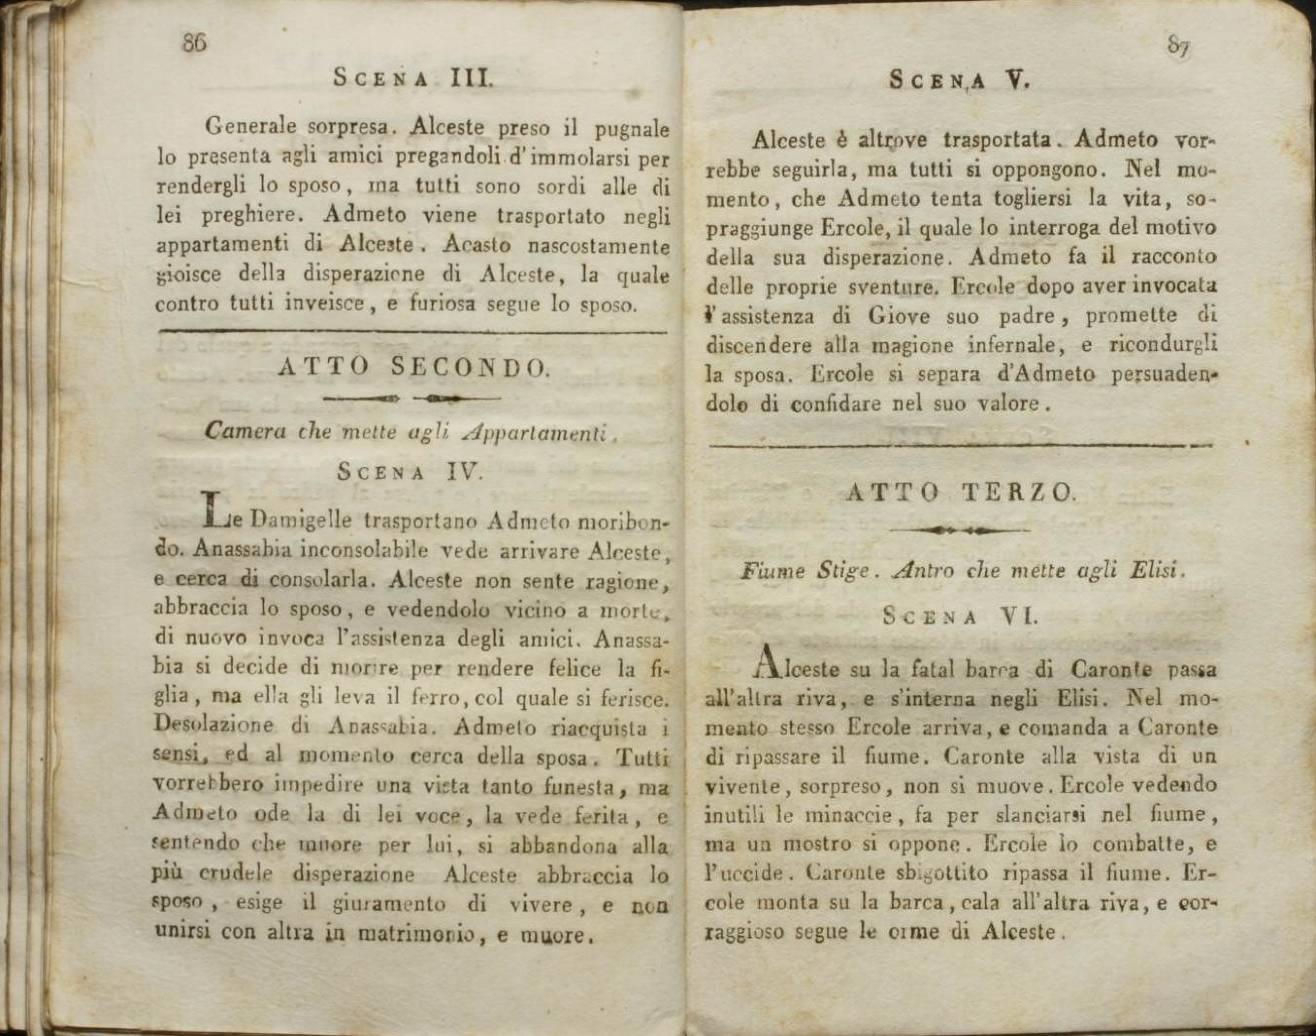 86
SCENA III.
Generale sorpresa. Alceste preso il pugnale
lo presenta agli amici pregandoli d'immolarsi per
rendergli lo sposo, ma tutti sono sordi alle di
lei preghiere. Admeto viene trasportato negli
appartamenti di Alceste. Acasto nascostamente
gioisce della disperazione di Alceste, la quale
contro tutti inveisce, e furiosa segue lo sposo.
ATTO SECONDO.
Camera che mette agli Appartamenti.
SCENA IV.
Le Damigelle trasportano Admeto moribon-
do. Anassabia inconsolabile vede arrivare Alceste,
e cerca di consolarla. Alceste non sente ragione,
abbraccia lo sposo, e vedendolo vicino a morte,
di nuovo invoca l'assistenza degli amici. Anassa-
bia si decide di morire per rendere felice la fi-
glia, ma ella gli leva il ferro, col quale si ferisce.
Desolazione di Anassabia. Admeto riacquista i
sensi, ed al momento cerca della sposa. Tutti
vorrebbero impedire una vista tanto funesta, ma
Admeto ode la di lei voce, la vede ferita, e
sentendo che muore per lui, si abbandona alla
più crudele disperazione Alceste abbraccia lo
sposo, esige il giuramento di vivere, e non
unirsi con altra in matrimonio, e muore.
87
SCENA V.
Alceste è altrove trasportata. Admeto vor-
rebbe seguirla, ma tutti si oppongono. Nel mo-
mento, che Admeto tenta togliersi la vita, so-
praggiunge Ercole, il quale lo interroga del motivo
della sua disperazione. Admeto fa il racconto
delle proprie sventure. Ercole dopo aver invocata
l'assistenza di Giove suo padre, promette di
discendere alla magione infernale, e ricondurgli
la sposa. Ercole si separa d'Admeto persuaden-
dolo di confidare nel suo valore.
ATTO TERZO.
Fiume Stige. Antro che mette agli Elisi.
SCENA VI.
Alceste su la fatal barca di Caronte passa
all'altra riva, e s'interna negli Elisi. Nel mo-
mento stesso Ercole arriva, e comanda a Caronte
di ripassare il fiume. Caronte alla vista di un
vivente, sorpreso, non si muove. Ercole vedendo
inutili le minaccie, fa per slanciarsi nel fiume,
ma un mostro si oppone. Ercole lo combatte, e
l'uccide. Caronte sbigottito ripassa il fiume. Er-
cole monta su la barca, cala all'altra riva, e cor-
raggioso segue le orme di Alceste.